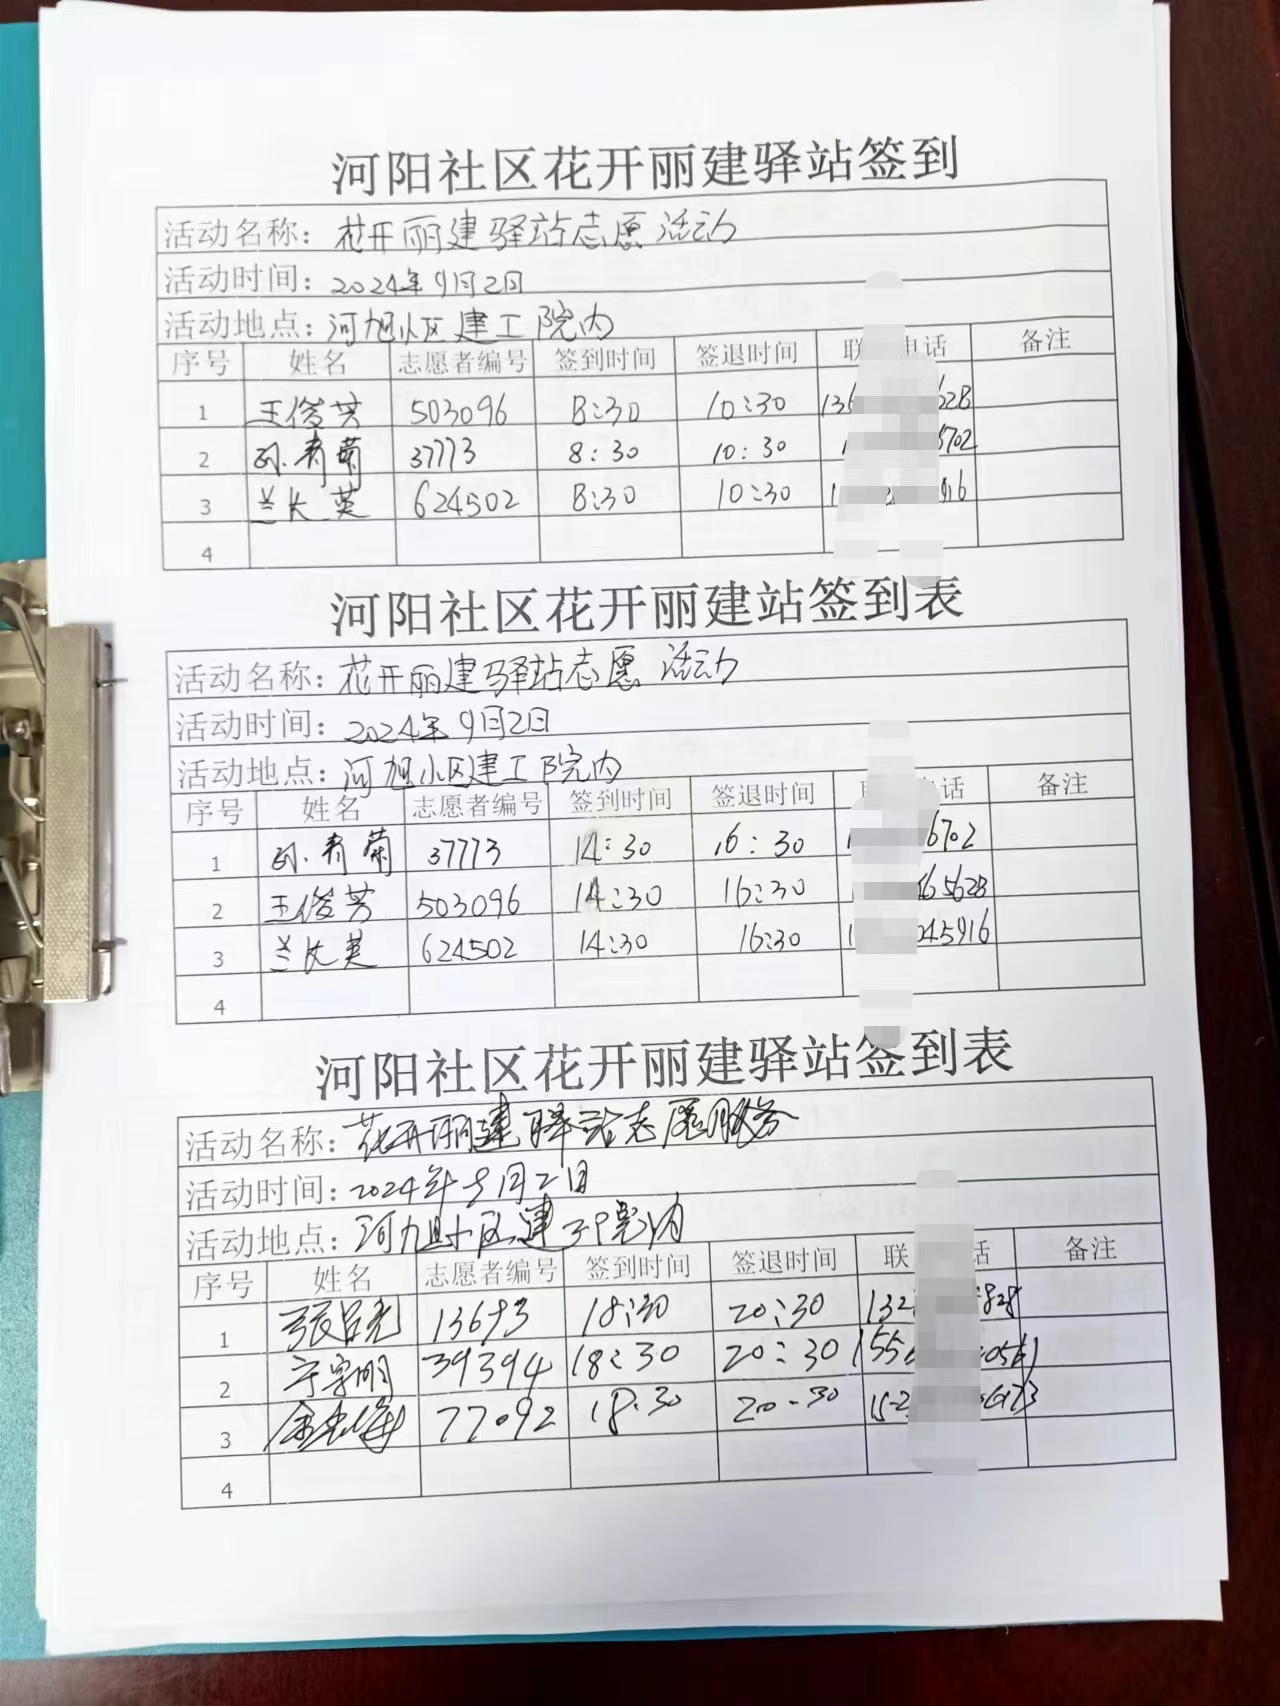 河阳社区花开丽建驿站签到
活动名称：花开丽建驿站志愿活动
活动时间：2024年9月2日
活动地点：河旭小区建工院内
序号 姓名 志愿者编号 签到时间 签退时间 联 电话 备注
1 王俊芳 503096 8:30 10:30 136 628
2 孙青菊 37773 8:30 10:30 1 702
3 兰长英 624502 8:30 10:30 1 916
4
河阳社区花开丽建站签到表
活动名称：花开丽建驿站志愿活动
活动时间：2024年9月2日
活动地点：河旭小区建工院内
序号 姓名 志愿者编号 签到时间 签退时间 话 备注
1 孙青菊 37773 14:30 16:30 1 6702
2 王俊芳 503096 14:30 16:30 65628
3 兰长英 624502 14:30 16:30 1 045916
4
河阳社区花开丽建驿站签到表
活动名称：花开丽建驿站志愿服务
活动时间：2024年9月2日
活动地点：河旭小区建工院内
序号 姓名 志愿者编号 签到时间 签退时间 联 话 备注
1 13693 18:30 20:30 132 828
2 39394 18:30 20:30 155
3 77092 18:30 20:30
4